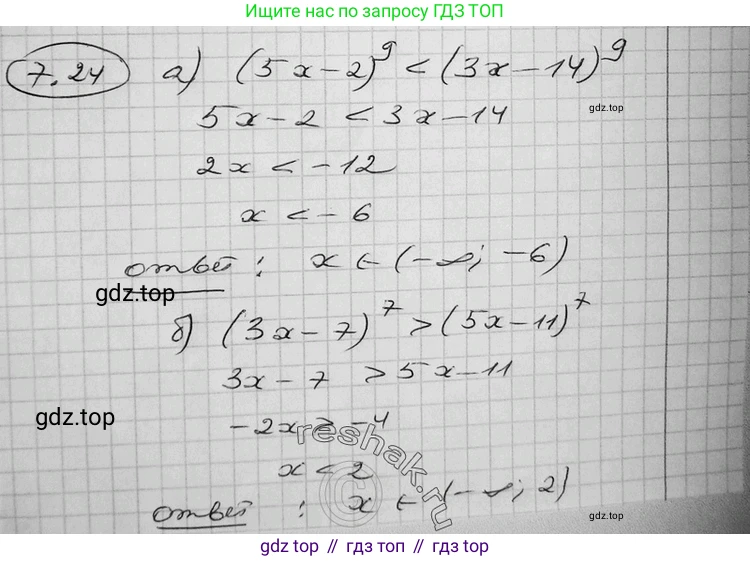 Ищите нас по запросу ГДЗ ТОП
7.24 а) (5x-2)⁹ < (3x-14)⁹
gdz.top
5x-2 < 3x-14
2x < -12
x < -6
ответ: x ∈ (-∞; -6)
gdz.top
б) (3x-7)⁷ > (5x-11)⁷
3x-7 > 5x-11
gdz.top
-2x > -4
reshak.ru
x < 2
©
ответ: x ∈ (-∞; 2)
gdz.top
gdz топ // гдз топ // gdz top